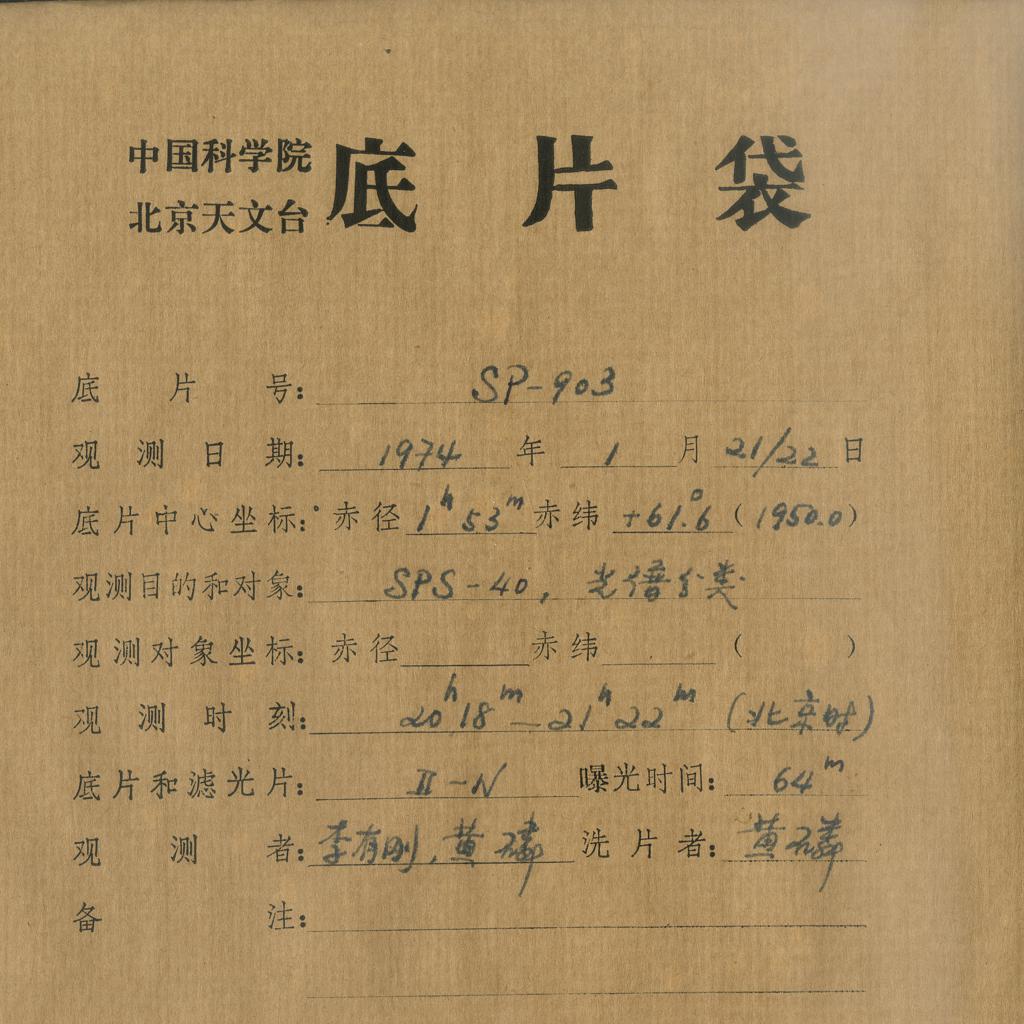 中国科学院
北京天文台
底片袋
底片号：SP-903
观测日期：1974年1月21/22日
底片中心坐标：赤径1h53m赤纬+61.6°（1950.0）
观测目的和对象：SPS-40，光谱分类
观测对象坐标：赤径 赤纬 （ ）
观测时刻：20h18m—21h22m（北京时）
底片和滤光片：II-N 曝光时间：64m
观测者：李有刚，黄磷 洗片者：黄磷
备注：